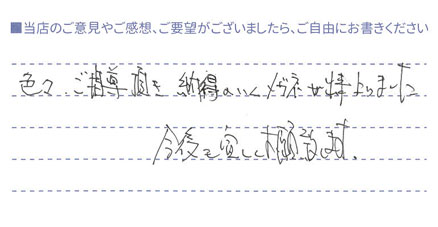 ■当店のご意見やご感想、ご要望がございましたら、ご自由にお書きください
色々ご指導頂き 納得のいくメガネが持てました
今後も宜しくお願い致します。